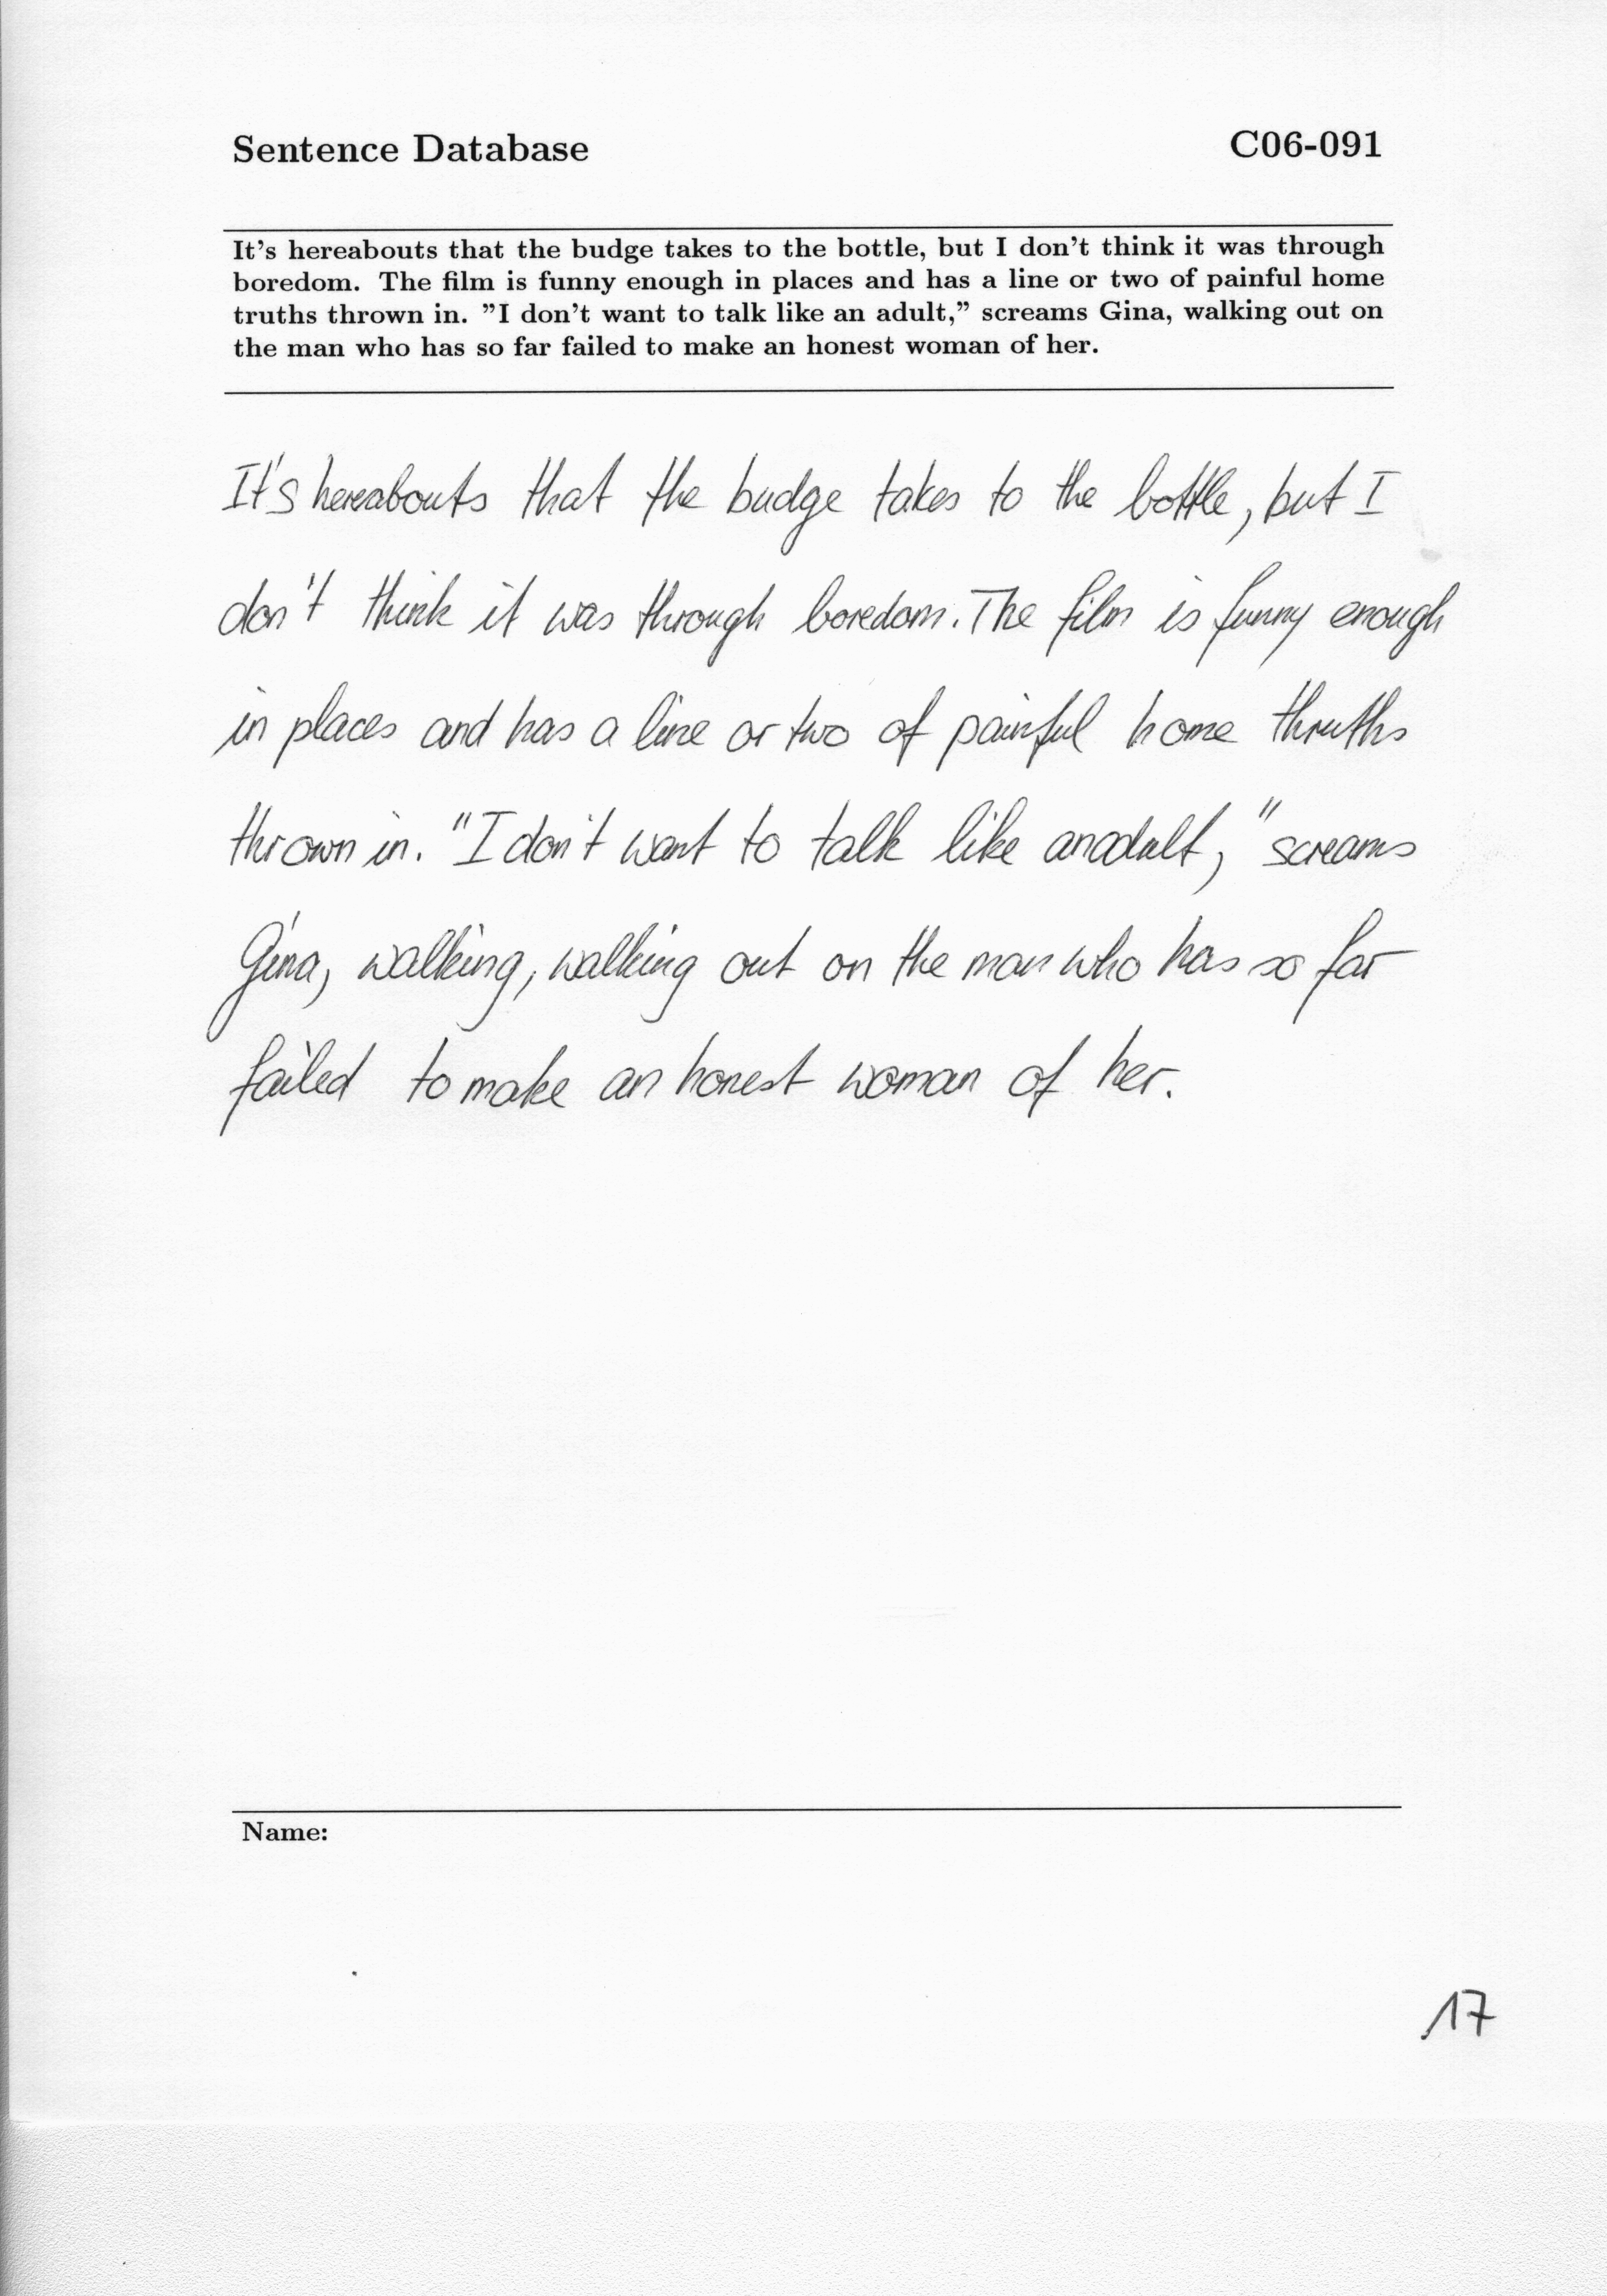 Sentence Database C06-091
It's hereabouts that the budge takes to the bottle, but I don't think it was through
boredom. The film is funny enough in places and has a line or two of painful home
truths thrown in. ”I don't want to talk like an adult,” screams Gina, walking out on
the man who has so far failed to make an honest woman of her.
It's hereabouts that the budge takes to the bottle, but I
don't think it was through boredom. The film is funny enough
in places and has a line or two of painful home thruths
thrown in. "I don't want to talk like an adult," screams
Gina, walking, walking out on the man who has so far
failed to make an honest woman of her.
Name:
17